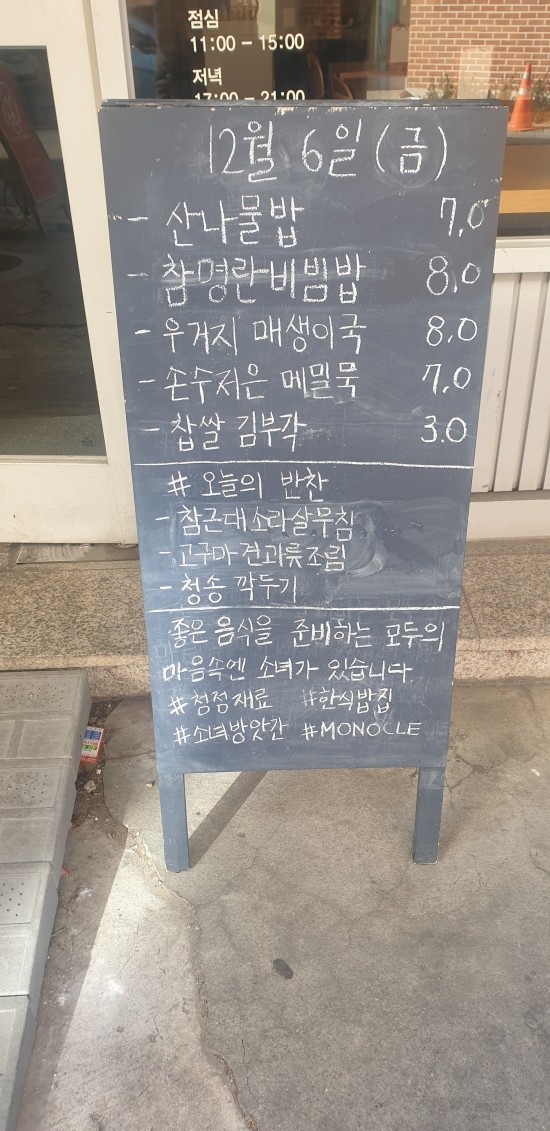 점심
11:00 - 15:00
저녁
17:00 - 21:00
12월 6일 (금)
- 산나물밥 7.0
- 참명란비빔밥 8.0
- 우거지 매생이국 8.0
- 손수저은 메밀묵 7.0
- 찹쌀 김부각 3.0
# 오늘의 반찬
- 참근대소라살무침
- 고구마견과류조림
- 청송 깍두기
좋은 음식을 준비하는 모두의
마음속엔 소녀가 있습니다.
#청정재료 #한식밥집
#소녀방앗간 #MONOCLE